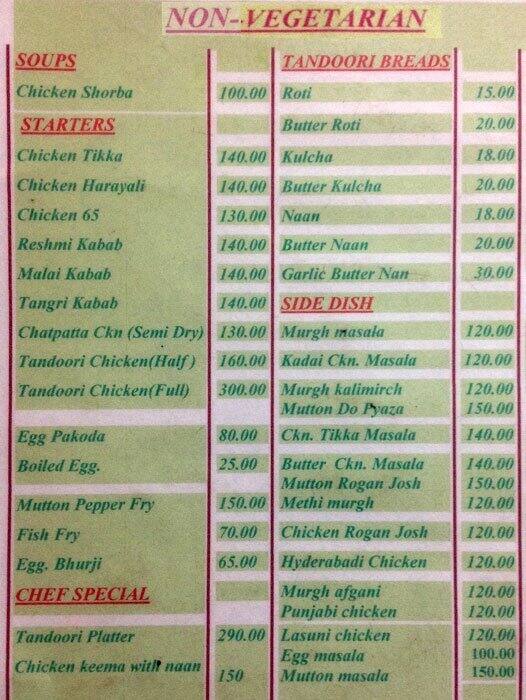 NON-VEGETARIAN
SOUPS
Chicken Shorba 100.00
STARTERS
Chicken Tikka 140.00
Chicken Harayali 140.00
Chicken 65 130.00
Reshmi Kabab 140.00
Malai Kabab 140.00
Tangri Kabab 140.00
Chatpatta Ckn (Semi Dry) 130.00
Tandoori Chicken(Half ) 160.00
Tandoori Chicken(Full) 300.00
Egg Pakoda 80.00
Boiled Egg. 25.00
Mutton Pepper Fry 150.00
Fish Fry 70.00
Egg. Bhurji 65.00
CHEF SPECIAL
Tandoori Platter 290.00
Chicken keema with naan 150
TANDOORI BREADS
Roti 15.00
Butter Roti 20.00
Kulcha 18.00
Butter Kulcha 20.00
Naan 18.00
Butter Naan 20.00
Garlic Butter Nan 30.00
SIDE DISH
Murgh masala 120.00
Kadai Ckn. Masala 120.00
Murgh kalimirch 120.00
Mutton Do Pyaza 150.00
Ckn. Tikka Masala 140.00
Butter Ckn. Masala 140.00
Mutton Rogan Josh 150.00
Methi murgh 120.00
Chicken Rogan Josh 120.00
Hyderabadi Chicken 120.00
Murgh afgani 120.00
Punjabi chicken 120.00
Lasuni chicken 120.00
Egg masala 100.00
Mutton masala 150.00